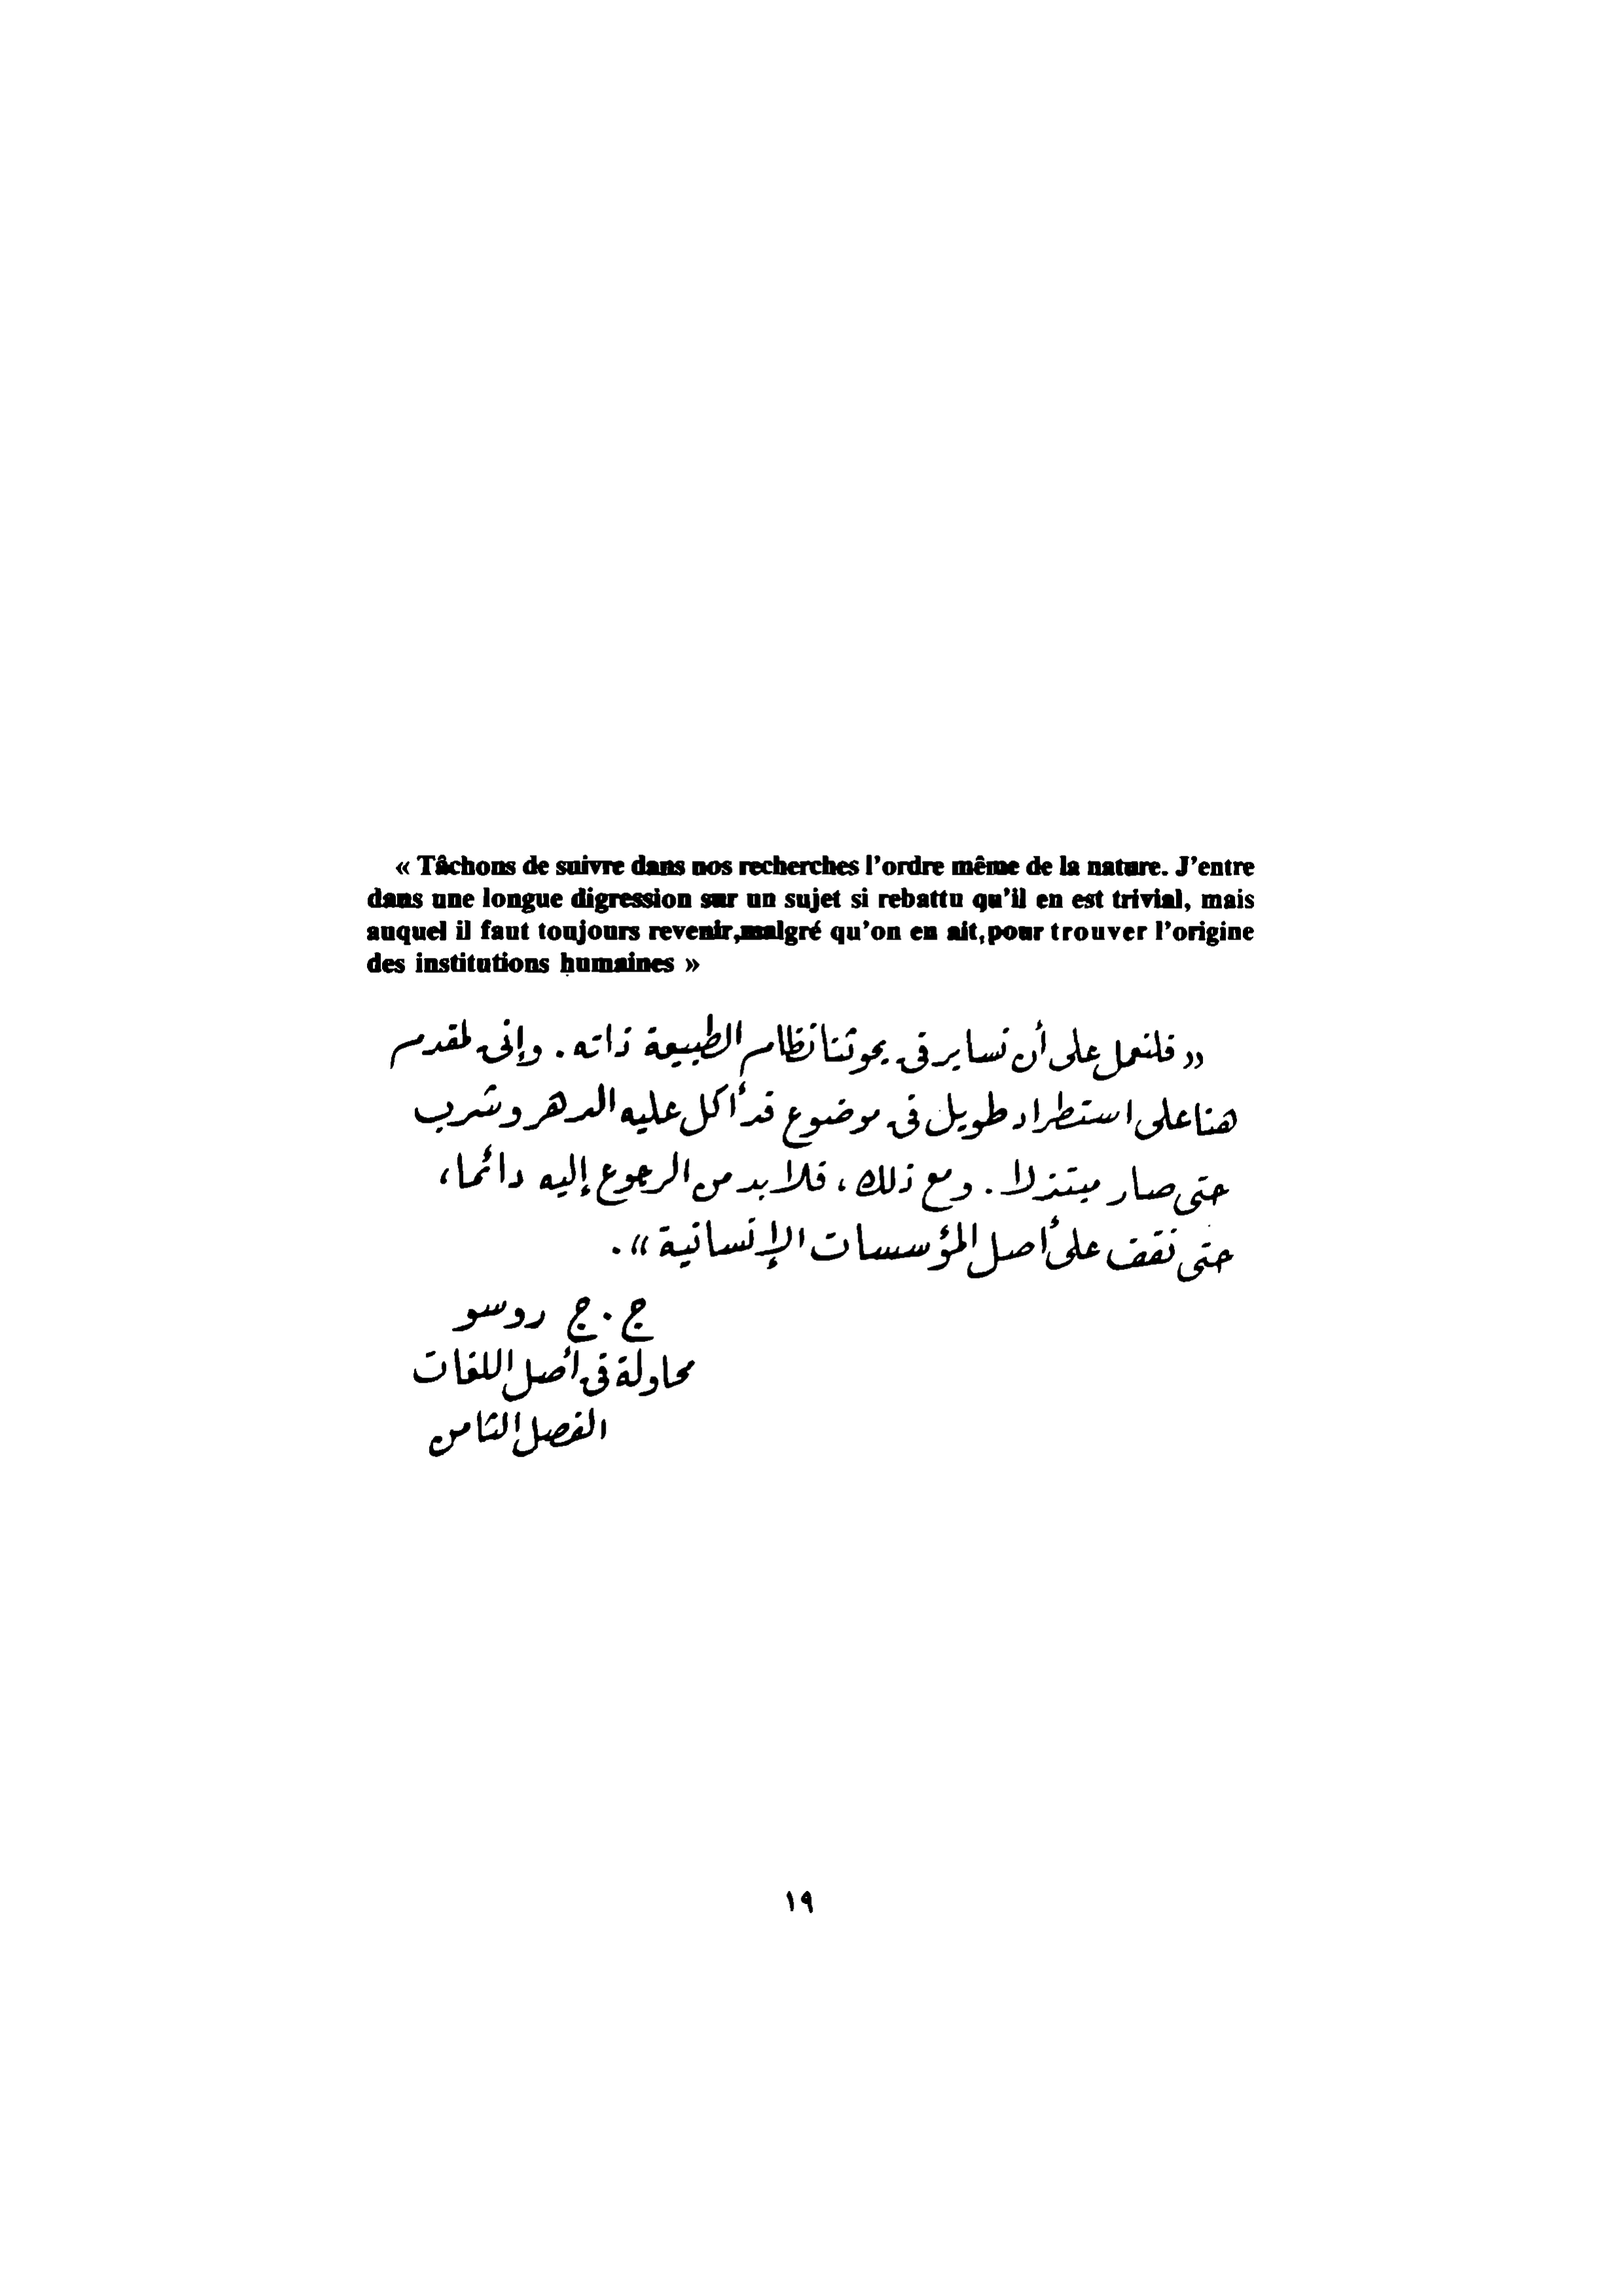 « Tâchons de suivre dans nos recherches l'ordre même de la nature. J'entre
dans une longue digression sur un sujet si rebattu qu'il en est trivial, mais
auquel il faut toujours revenir,malgré qu'on en ait,pour trouver l'origine
des institutions humaines »
« فلنعمل على أن نساير فى بحوثنا نظام الطبيعة ذاته . وإنى لمقدم
هنا على استطراد طويل فى موضوع قد أكل عليه الدهر وشرب
حتى صار مبتذلا . ومع ذلك ، فلا بد من الرجوع إليه دائما ،
حتى نقف على أصل المؤسسات الإنسانية » .
ج . ج روسو
محاولة فى أصل اللغات
الفصل الثامن
١٩